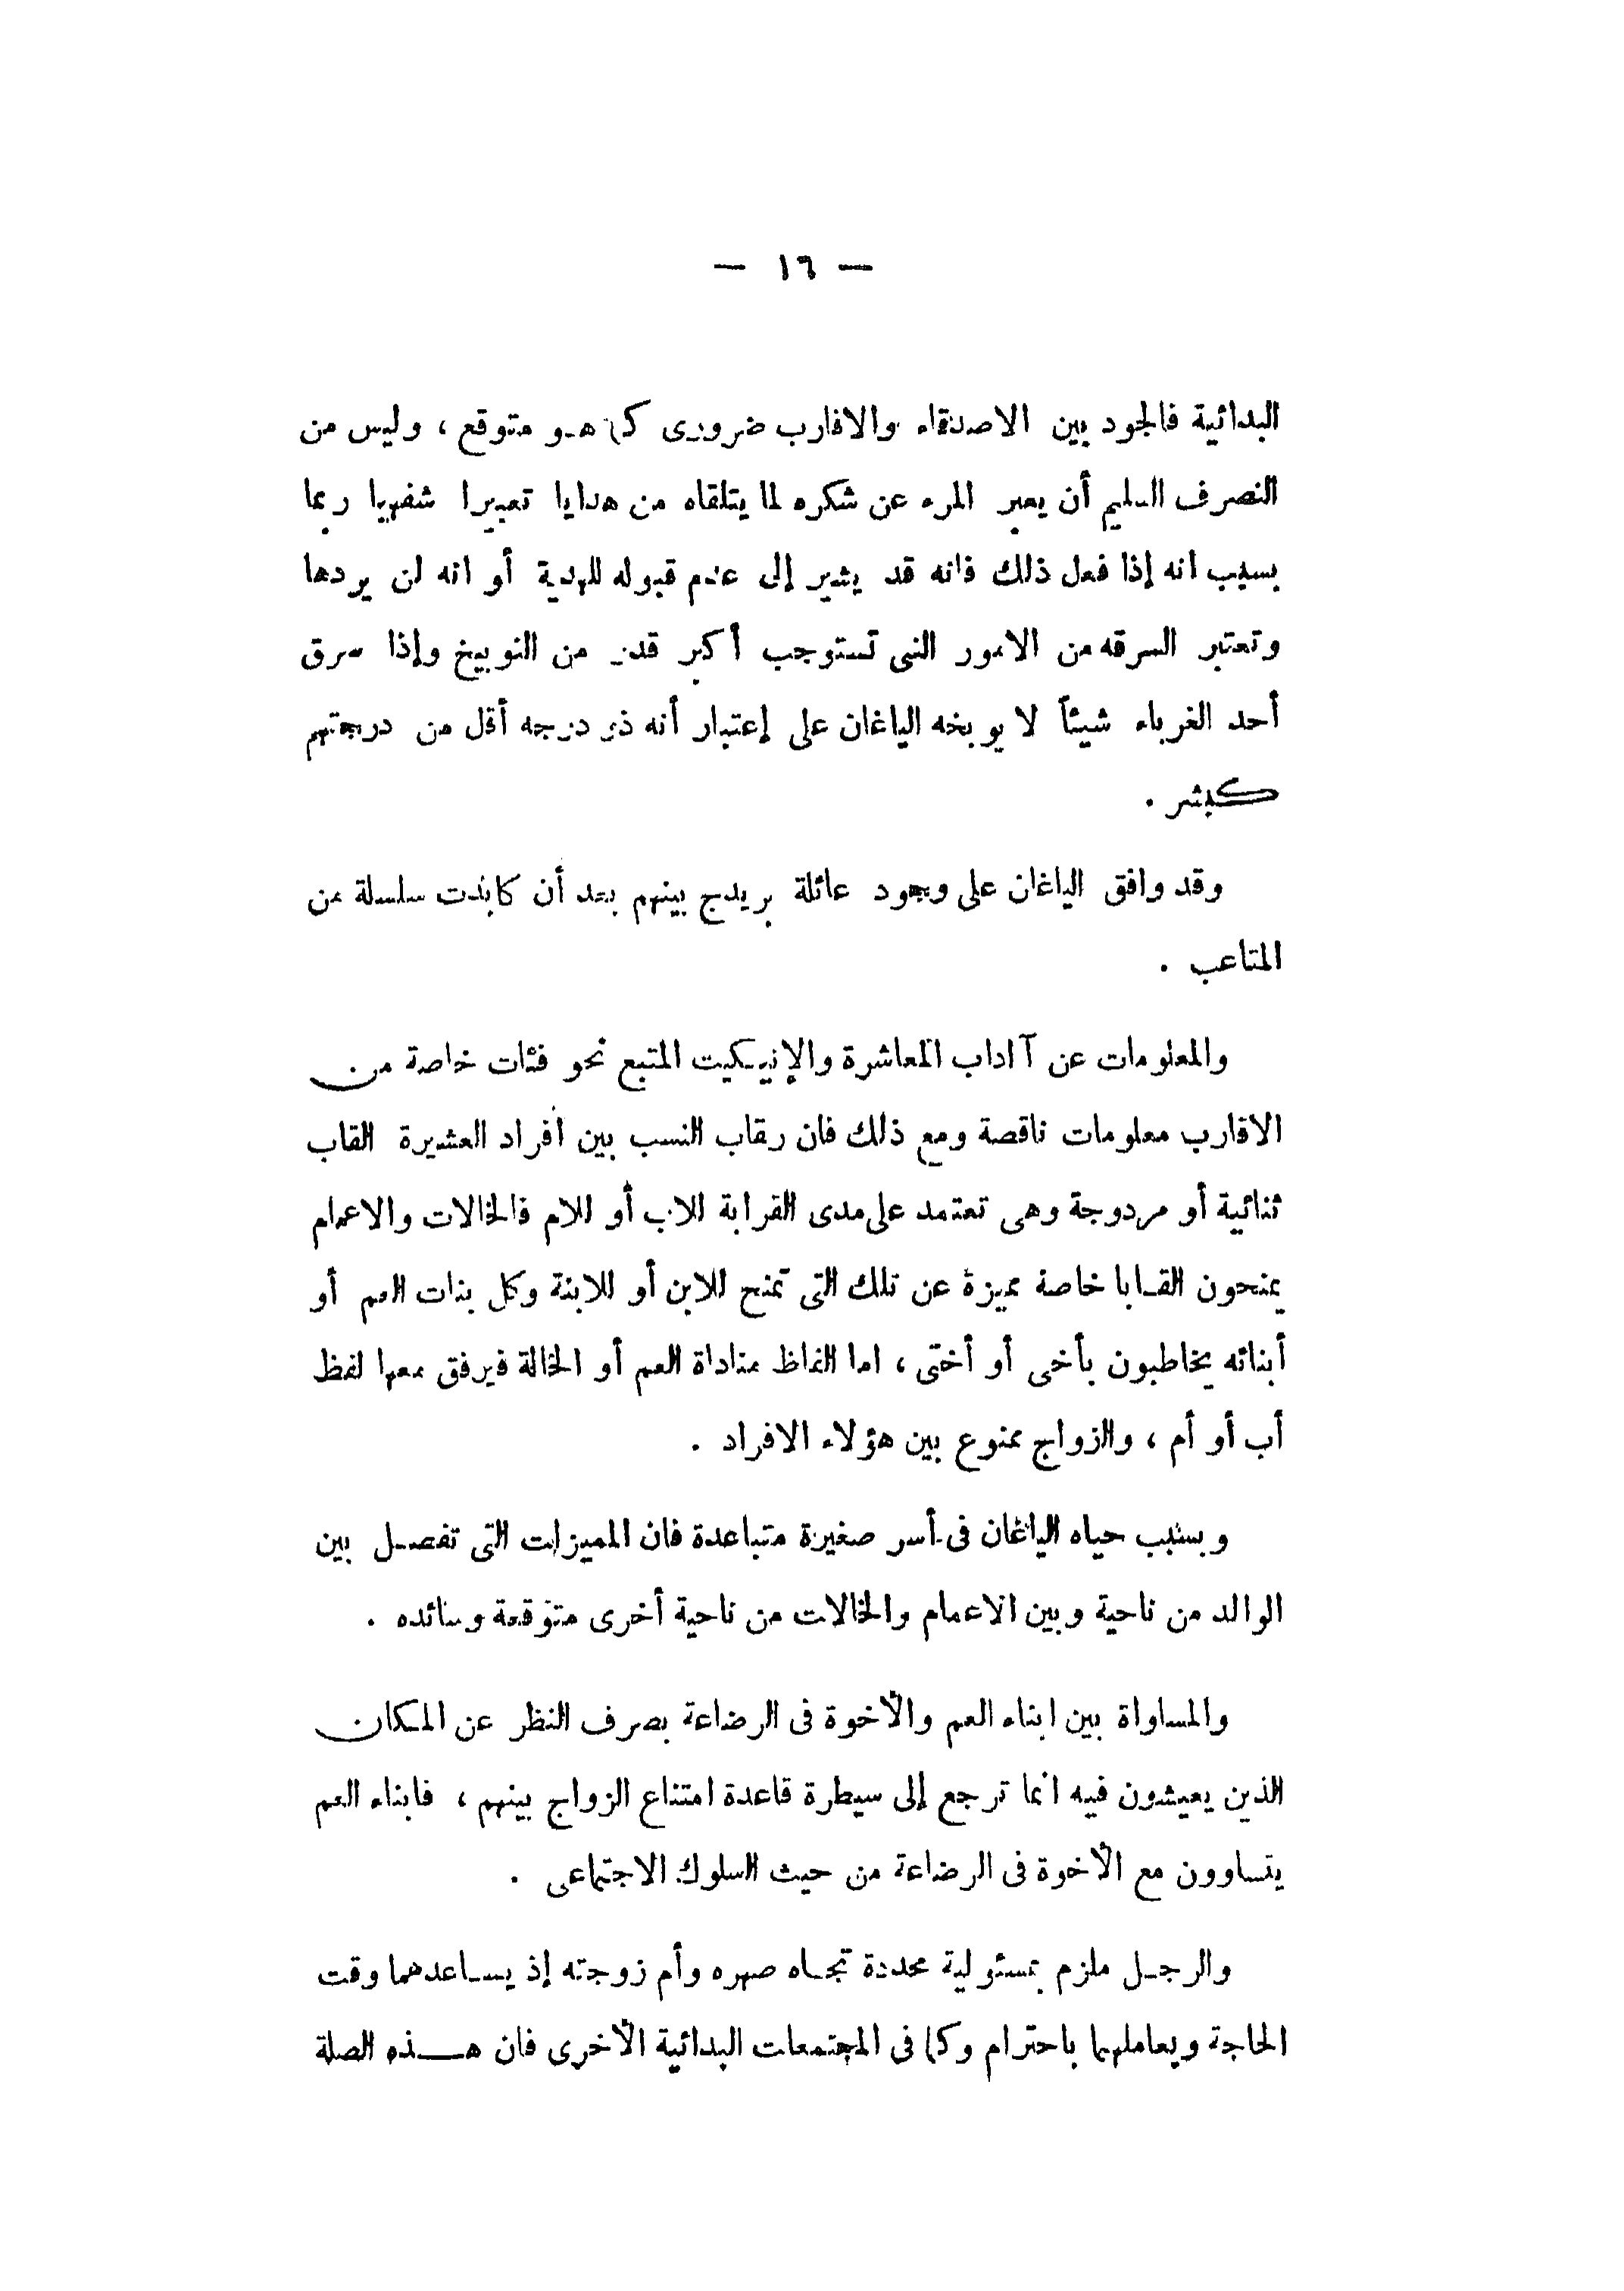 — ١٦ —
البدائية فالجود بين الاصدقاء والاقارب ضرورى كما هو متوقع ، وليس من
التصرف السليم أن يعبر المرء عن شكره لما يتلقاه من هدايا تعبيرا شفهيا ربما
بسبب انه إذا فعل ذلك فانه قد يشير إلى عدم قبوله للهدية أو انه لن يردها
وتعتبر السرقه من الامور التى تستوجب أكبر قدر من التوبيخ وإذا سرق
أحد الغرباء شيئاً لا يوبخه الياغان على إعتبار أنه ذو درجه أقل من درجتهم
كبشر .
وقد وافق الياغان على وجود عائلة بريدج بينهم بعد أن كابدت سلسلة من
المتاعب .
والمعلومات عن آاداب المعاشرة والإتيكيت المتبع نحو فئات خاصة من
الاقارب معلومات ناقصة ومع ذلك فان رقاب النسب بين أفراد العشيرة القاب
ثنائية أو مردوجة وهى تعتمد على مدى القرابة للاب أو للام فالخالات والاعمام
يمنحون القابا خاصة مميزة عن تلك التى تمنح للابن أو للابنة وكل بنات العم أو
أبنائه يخاطبون بأخى أو أختى ، اما الفاظ مناداة العم أو الخالة فيرفق معها لفظ
أب أو أم ، والزواج ممنوع بين هؤلاء الافراد .
وبسبب حياه الياغان فى أسر صغيرة متباعدة فان المميزات التى تفصل بين
الوالد من ناحية وبين الاعمام والخالات من ناحية أخرى متوقعة وسائده .
والمساواة بين ابناء العم والأخوة فى الرضاعة بصرف النظر عن المكان
الذين يعيشون فيه انما ترجع إلى سيطرة قاعدة امتناع الزواج بينهم ، فابناء العم
يتساوون مع الأخوة فى الرضاعة من حيث السلوك الاجتماعى .
والرجل ملزم بمسئولية محددة تجاه صهره وأم زوجته إذ يساعدهما وقت
الحاجة ويعاملهما باحترام وكما فى المجتمعات البدائية الأخرى فان هذه الصلة